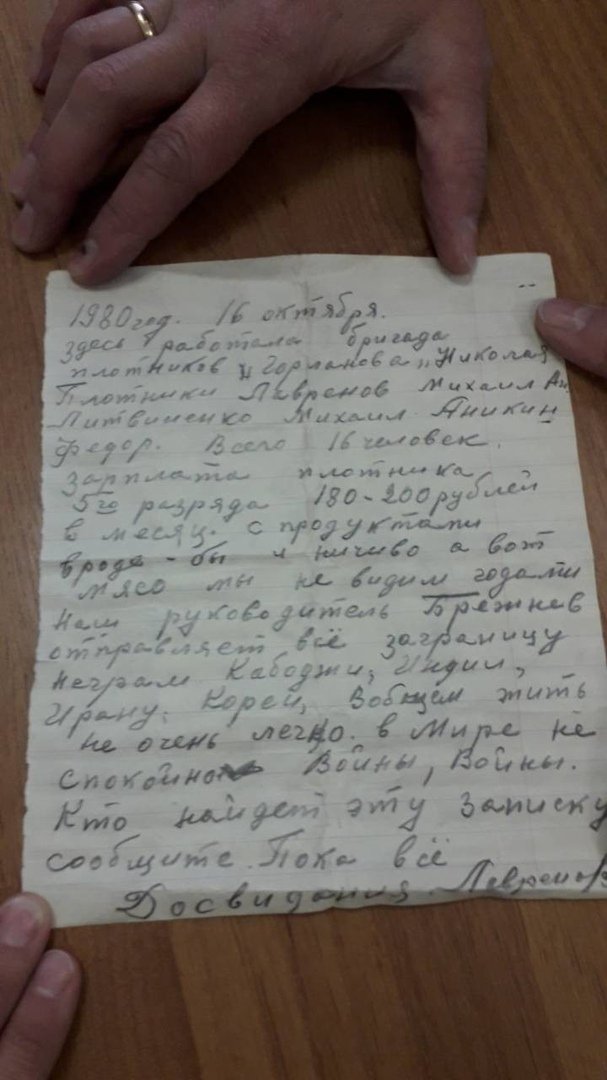 1980 год. 16 октября.
здесь работала бригада
плотников „Горланова„ Николая
Плотники Лавренов Михаил Ан.
Литвиненко Михаил. Аникин
Федор. Всего 16 человек.
зарплата плотника
5го разряда 180-200 рублей
в месяц. с продуктами
вроде-бы и ничиво а вот
мясо мы не видим годами
наш руководитель Брежнев
отправляет всё заграницу
неграм Кабоджи, Индии,
Ирану. Кореи, Вобщем жить
не очень легко. в Мире не
спокойно Войны, Войны.
Кто найдет эту Записку
сообщите. Пока всё
Досвидания. Лавренов